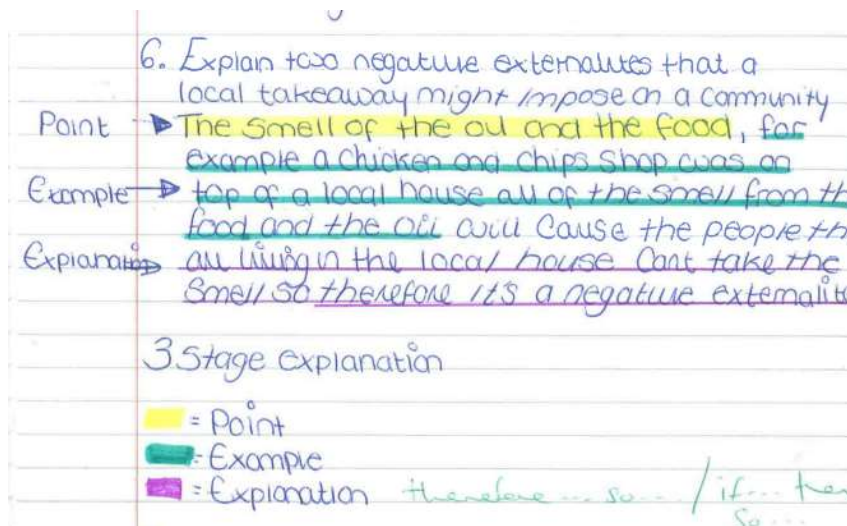 6. Explain two negative externalites that a
local takeaway might impose on a community
Point The smell of the oil and the food, for
example a chicken and chips shop was on
Example top of a local house all of the smell from th
food and the oil will cause the people th
Explanation all living in the local house cant take the
smell so therefore it's a negative externalite
3 Stage explanation
= Point
= Example
= Explanation therefore... so... / if... the
so...